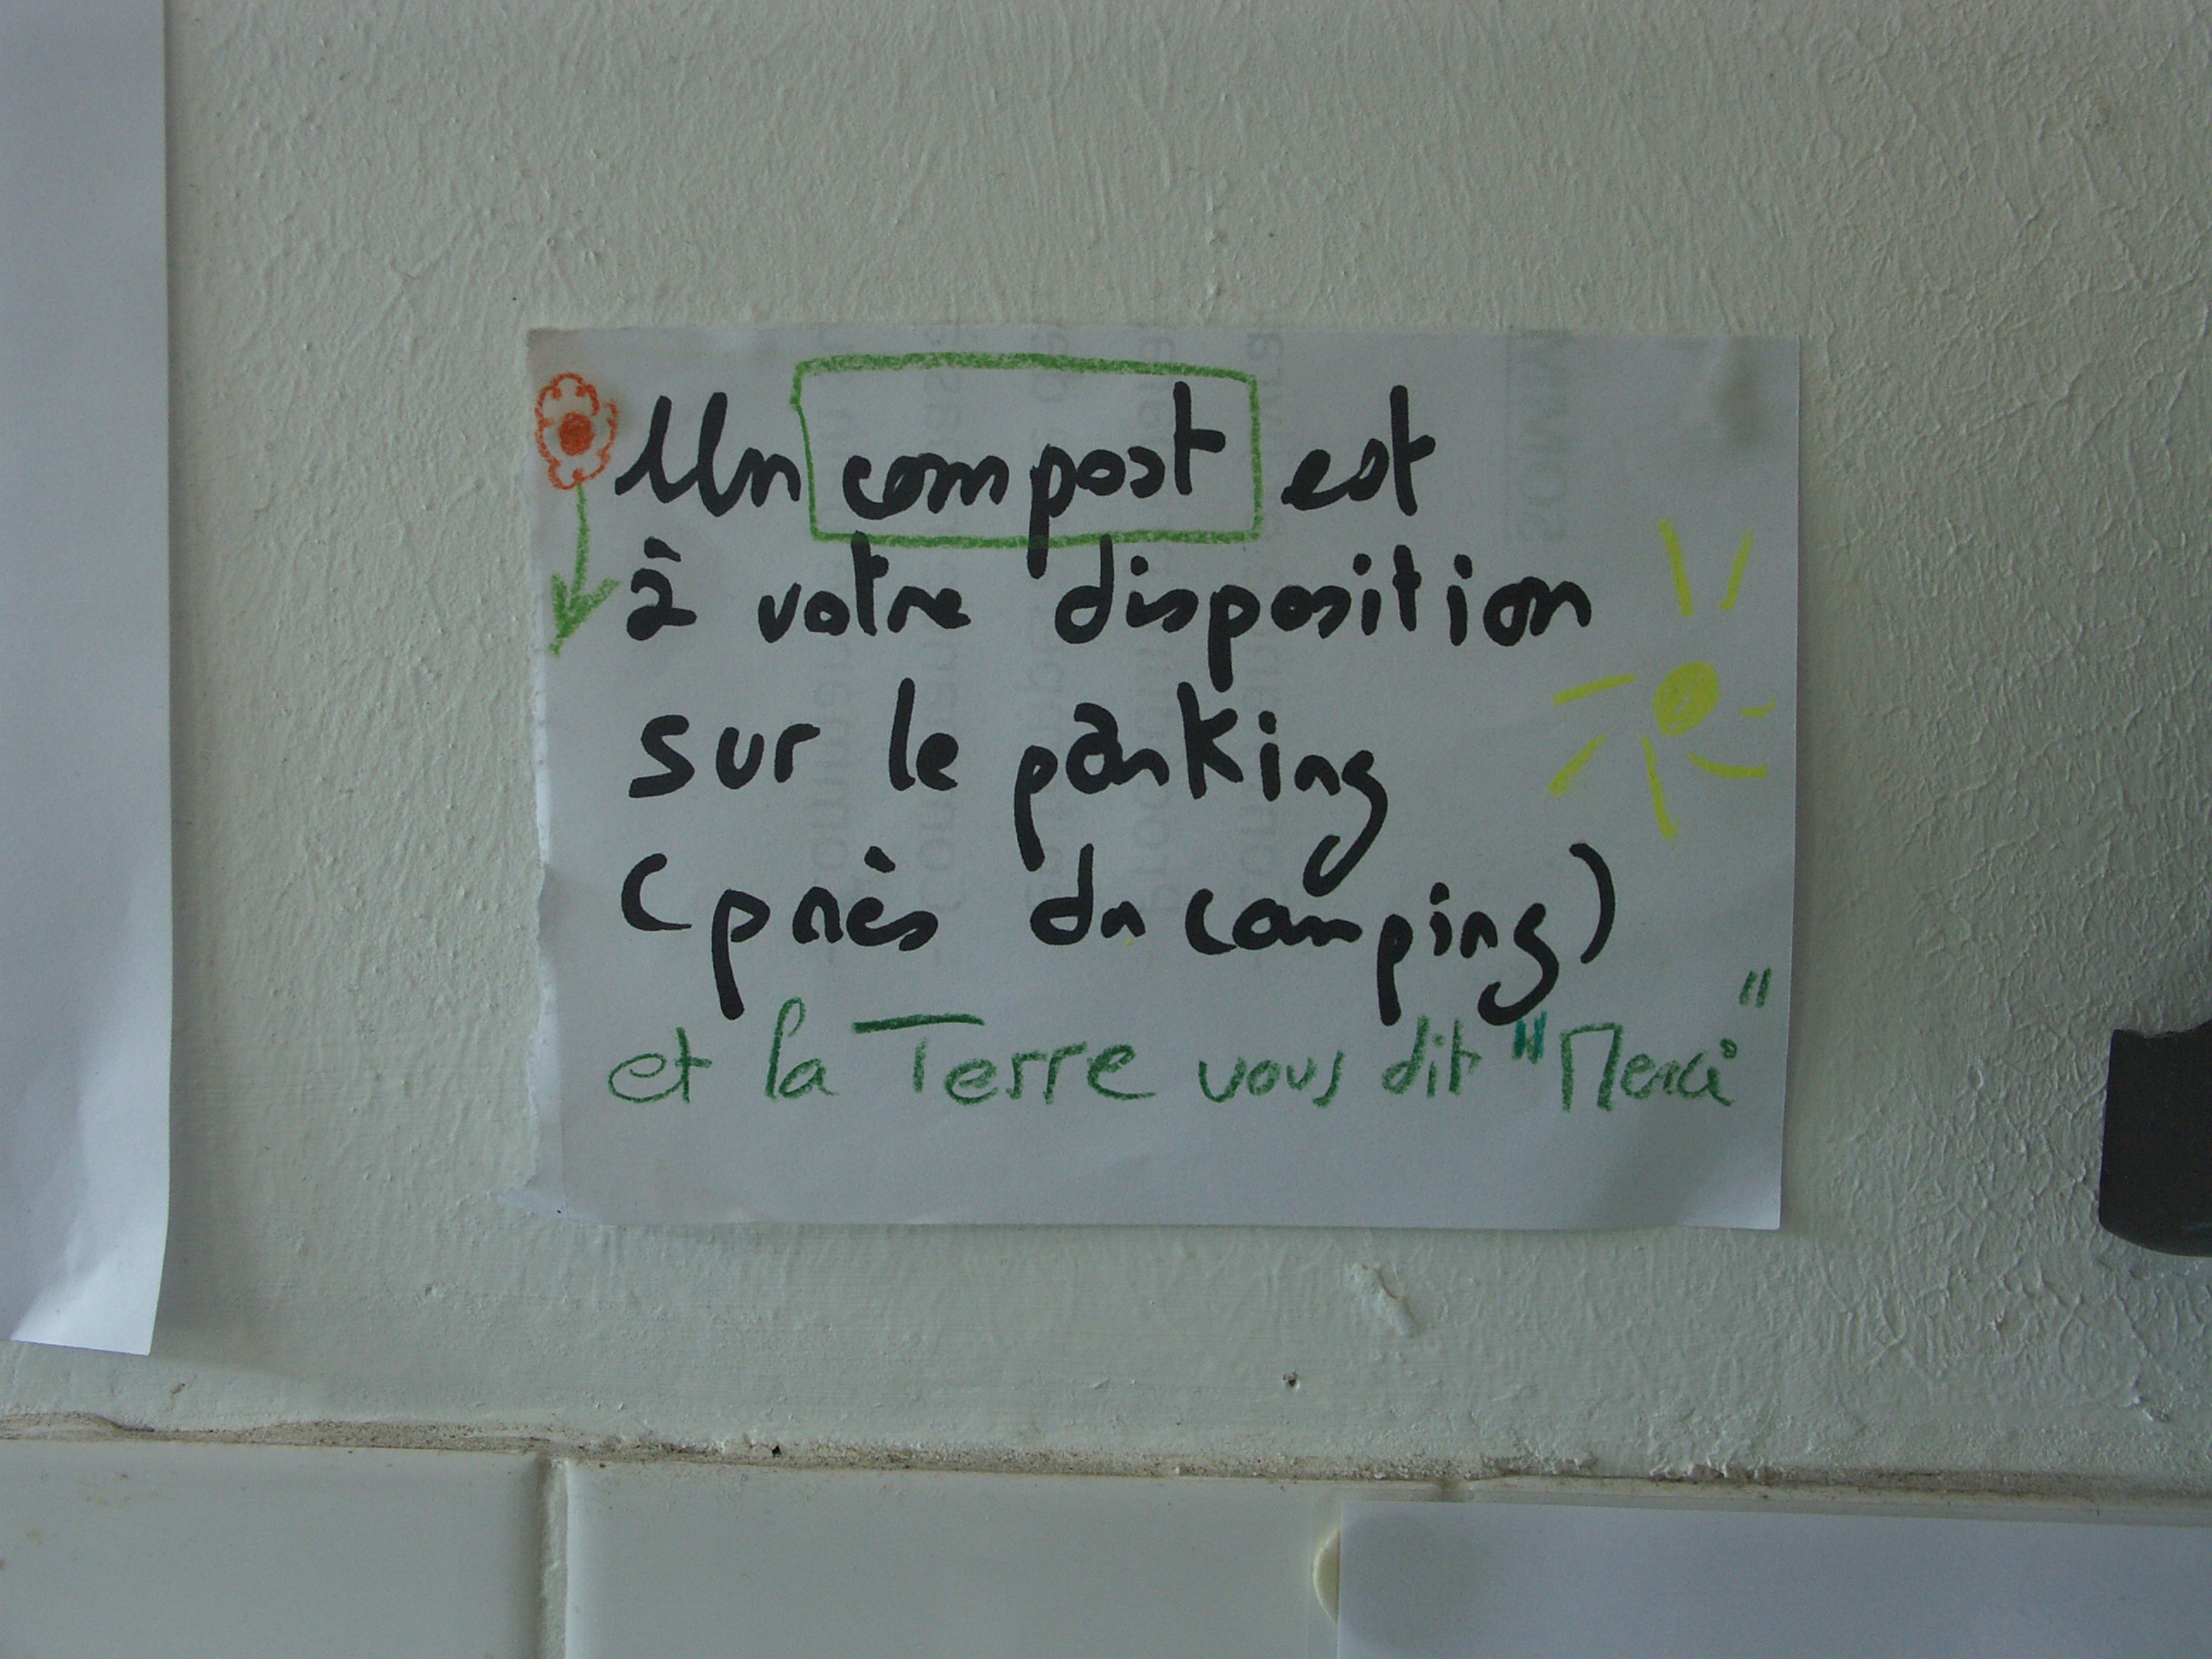 Un compost est
à votre disposition
sur le parking
(près du camping)
et la Terre vous dit "Merci"